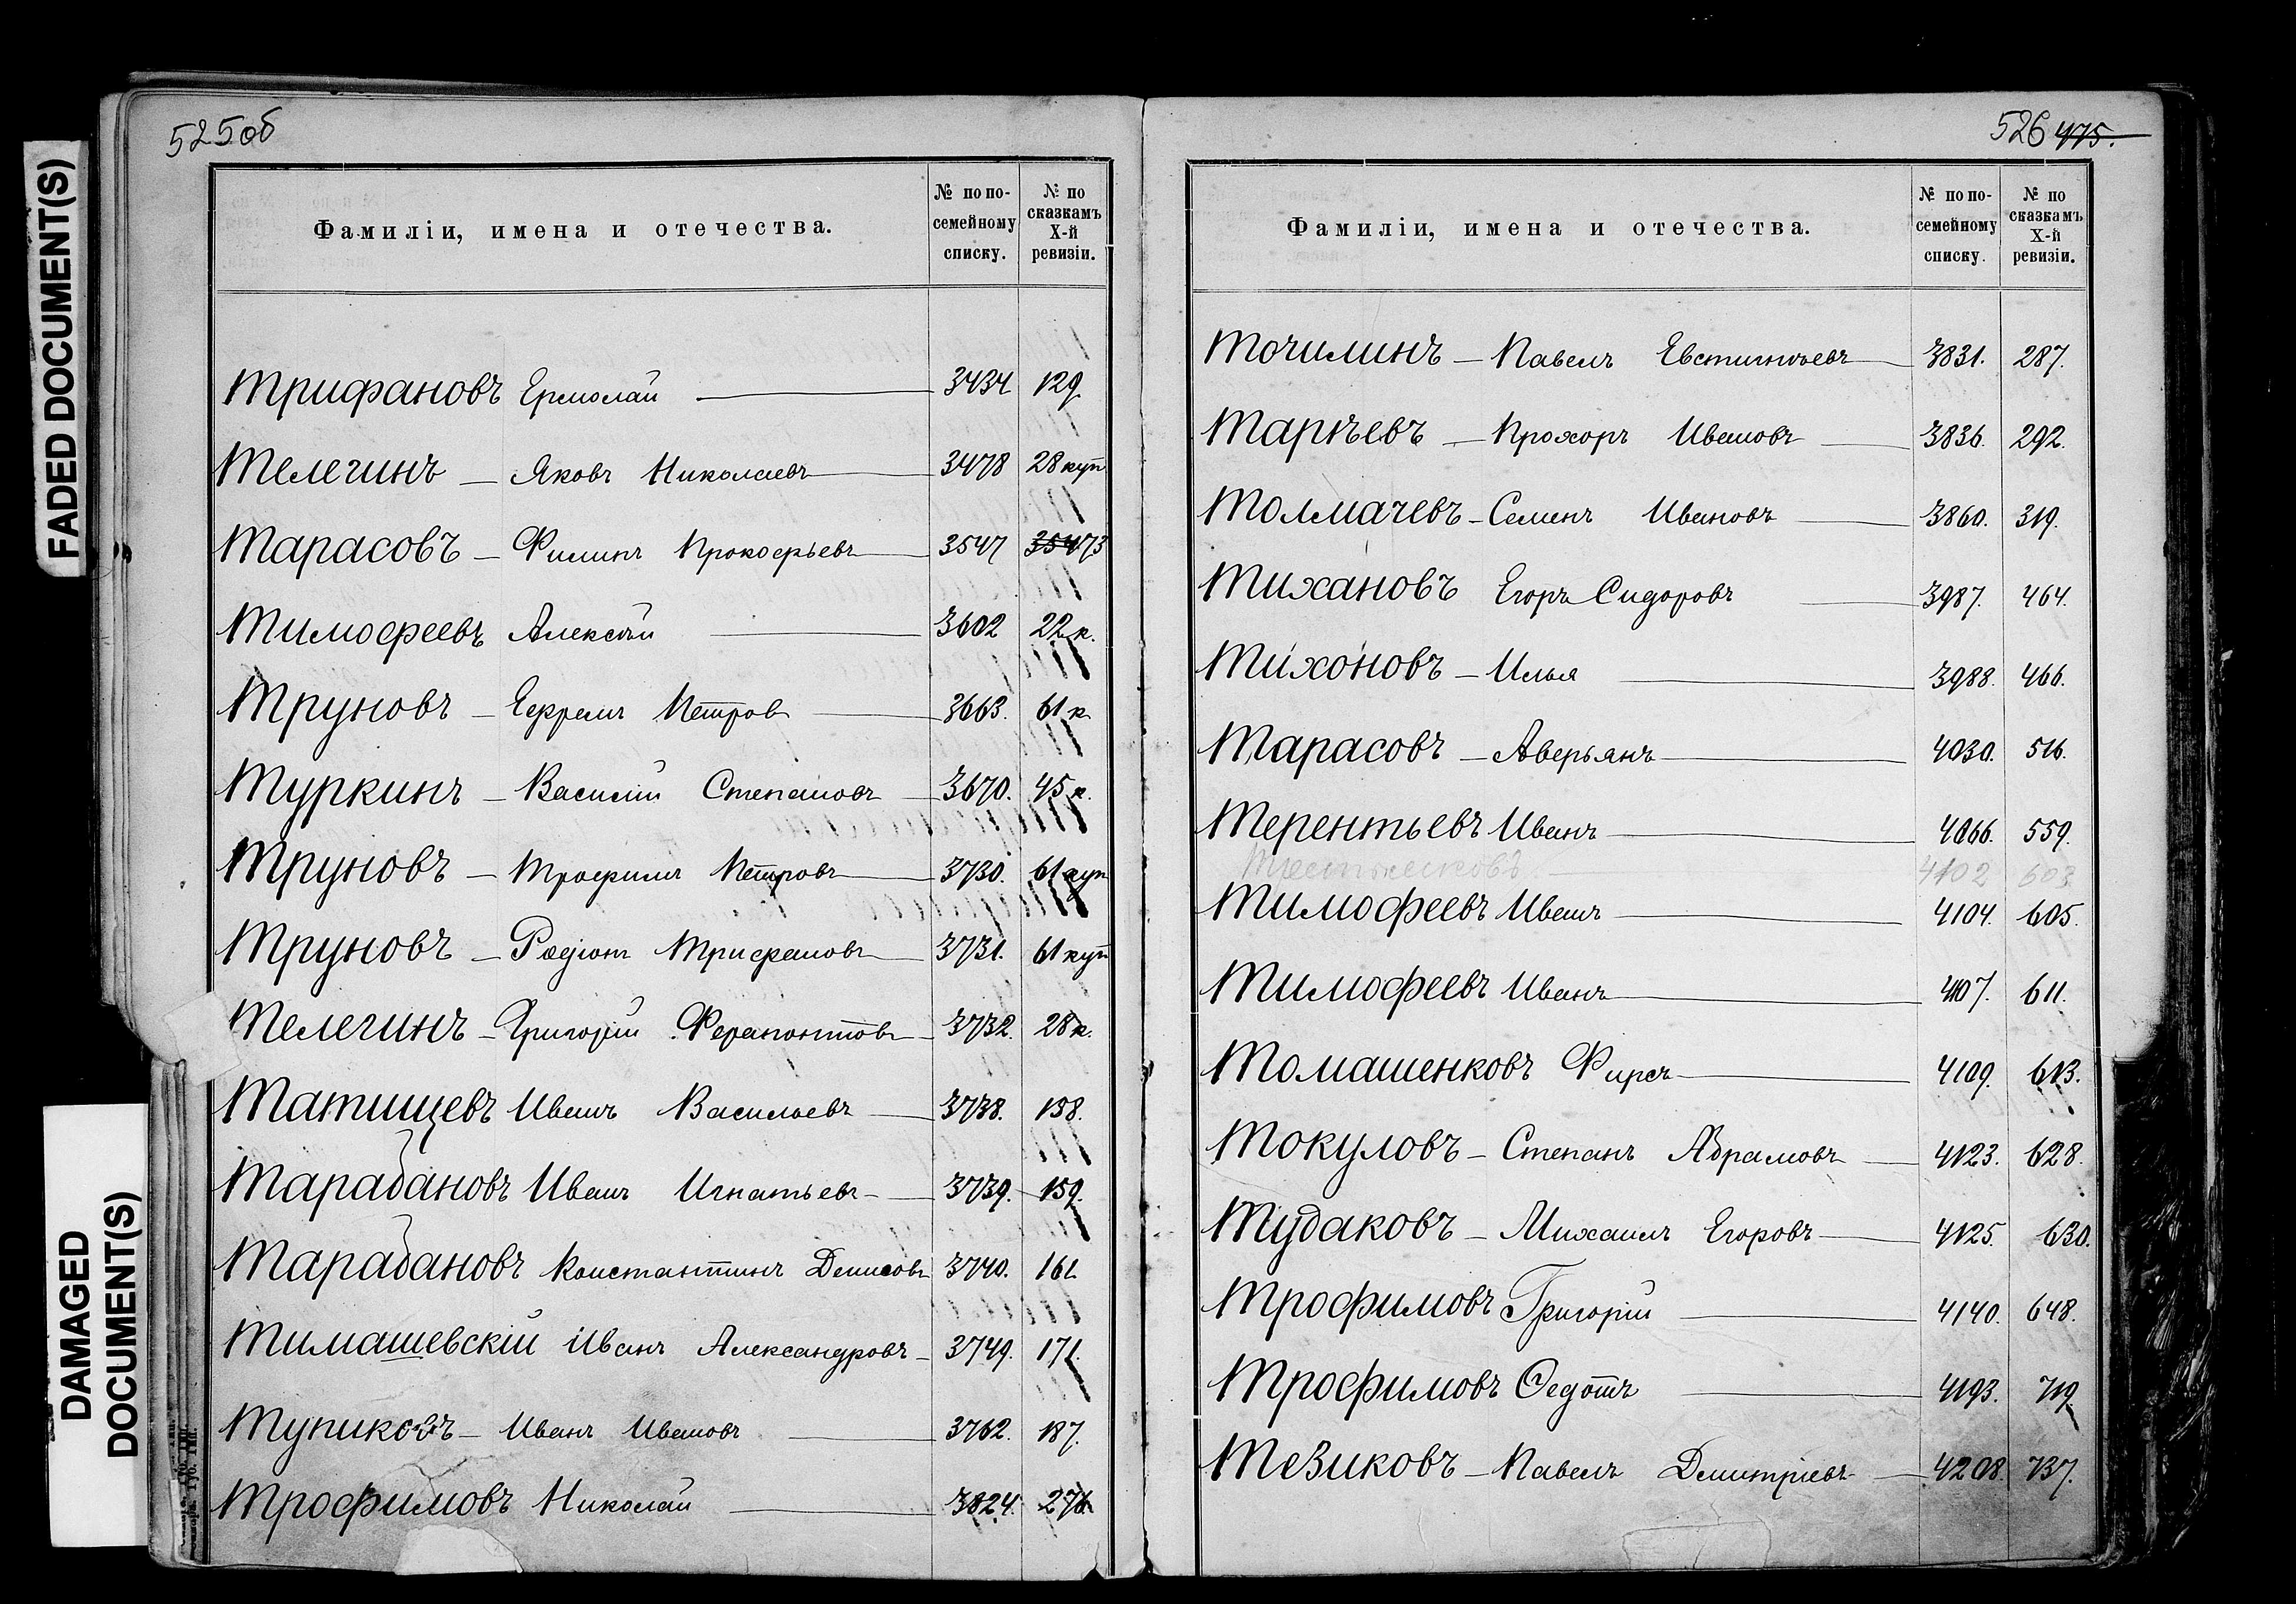 525об
Фамиліи, имена и отечества.
№ по по-
семейному
списку.
№ по
сказкамъ
X-й
ревизіи.
Трифановъ Ермолай 3434 129
Телегинъ - Яковъ Николаевъ 3478 28 куп
Тарасовъ - Филипъ Прокофьевъ 3547 354 73
Тимофеевъ Алексѣй 3602 22 к.
Труновъ - Ефремъ Петров 3663. 61 к
Туркинъ - Василій Степановъ 3670. 45 к.
Труновъ - Трофимъ Петровъ 3730. 61 куп
Труновъ - Родіонъ Трифановъ 3731. 61 куп
Телегинъ - Григорій Ферапонтовъ 3732. 28 к.
Татищевъ Иванъ Васильевъ 3738. 158.
Тарабановъ Иванъ Игнатьевъ - 3739. 159.
Тарабановъ Константинъ Денисовъ 3740. 161
Тимашевскій Иванъ Александровъ - 3749. 171.
Тупиковъ - Иванъ Ивановъ 3762. 187.
Трофимовъ Николай 3824. 276
526 475.
Фамиліи, имена и отечества.
№ по по-
семейному
списку.
№ по
сказкамъ
X-й
ревизіи.
Точилинъ - Павелъ Евстигнѣевъ 3831. 287.
Тарѣевъ - Прохоръ Ивановъ 3836. 292.
Толмачевъ - Семенъ Ивановъ 3860. 319.
Тихановъ Егоръ Сидоровъ 3987. 464.
Тихоновъ - Илья 3988. 466.
Тарасовъ - Аверьянъ 4030. 516.
Терентьевъ Иванъ 4066. 559.
4102 603
Тимофеевъ Иванъ 4104. 605.
Тимофеевъ Иванъ 4107. 611.
Томашенковъ Фирсъ 4109. 613.
Токуловъ - Степанъ Абрамовъ 4123. 628.
Тудаковъ - Михаилъ Егоровъ 4125. 630.
Трофимовъ Григорій 4140. 648.
Трофимовъ Федотъ 4193. 719.
Тезиковъ - Павелъ Дмитріевъ 4208. 737.
FADED DOCUMENT(S)
DAMAGED
DOCUMENT(S)